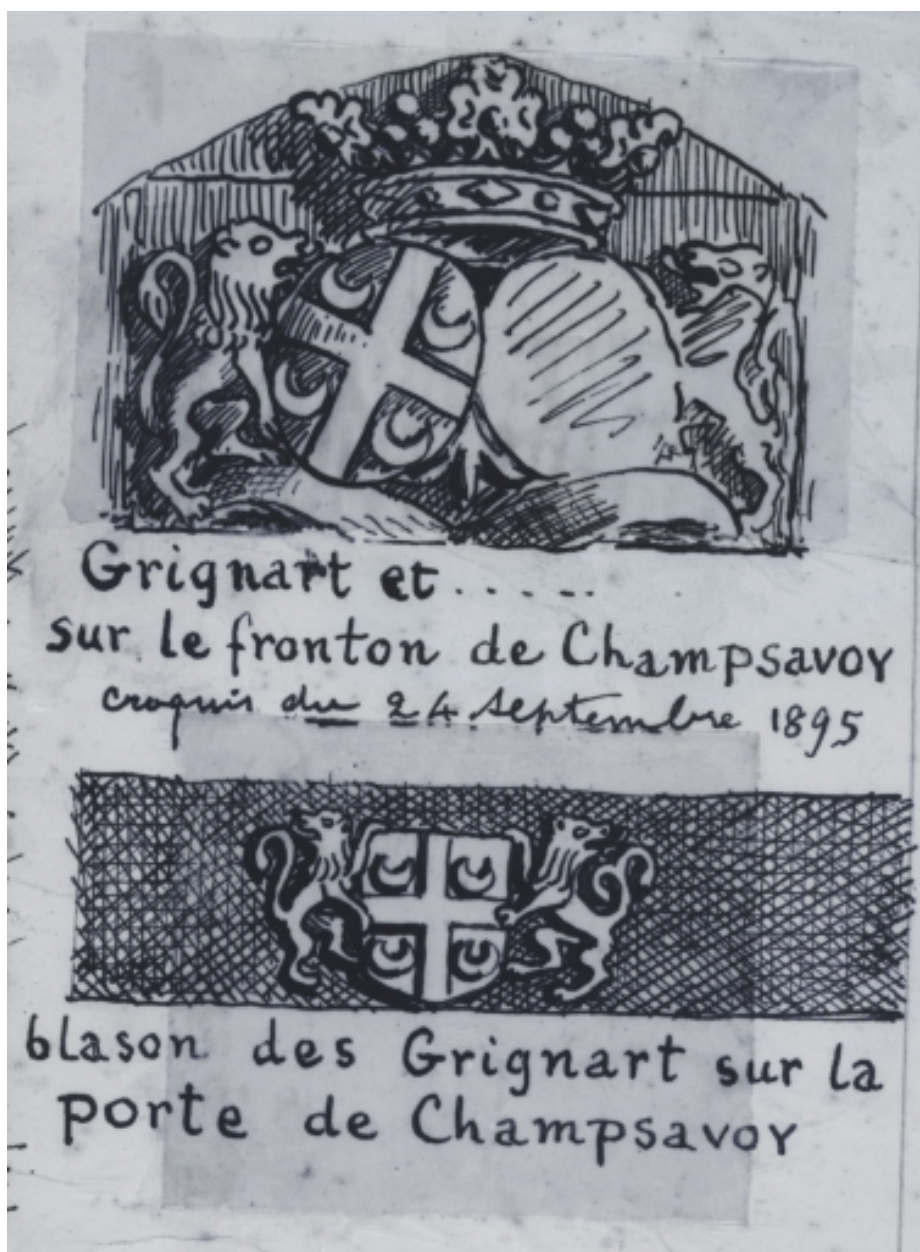 Grignart et......
sur le fronton de Champsavoy
croquis du 24 septembre 1895
blason des Grignart sur la
porte de Champsavoy